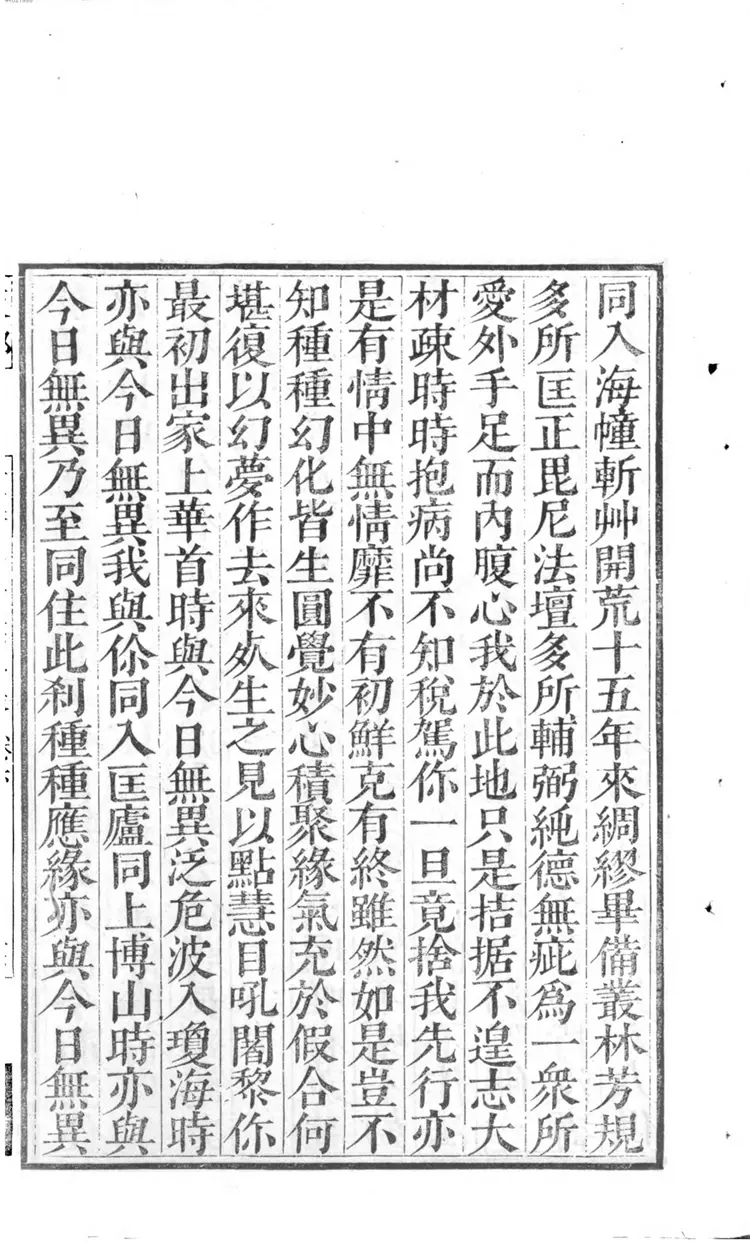 同入海幢斬艸開荒十五年來綢繆畢備叢林芳規
多所匡正毘尼法壇多所輔弼純德無疵爲一衆所
愛外手足而內腹心我於此地只是拮据不遑志大
材疎時時抱病尚不知稅駕你一旦竟捨我先行亦
是有情中無情靡不有初鮮克有終雖然如是豈不
知種種幻化皆生圓覺妙心積聚緣氣充於假合何
堪復以幻夢作去來㱐生之見以點慧目吼闍黎你
最初出家上華首時與今日無異泛危波入瓊海時
亦與今日無異我與你同入匡廬同上博山時亦與
今日無異乃至同住此刹種種應緣亦與今日無異